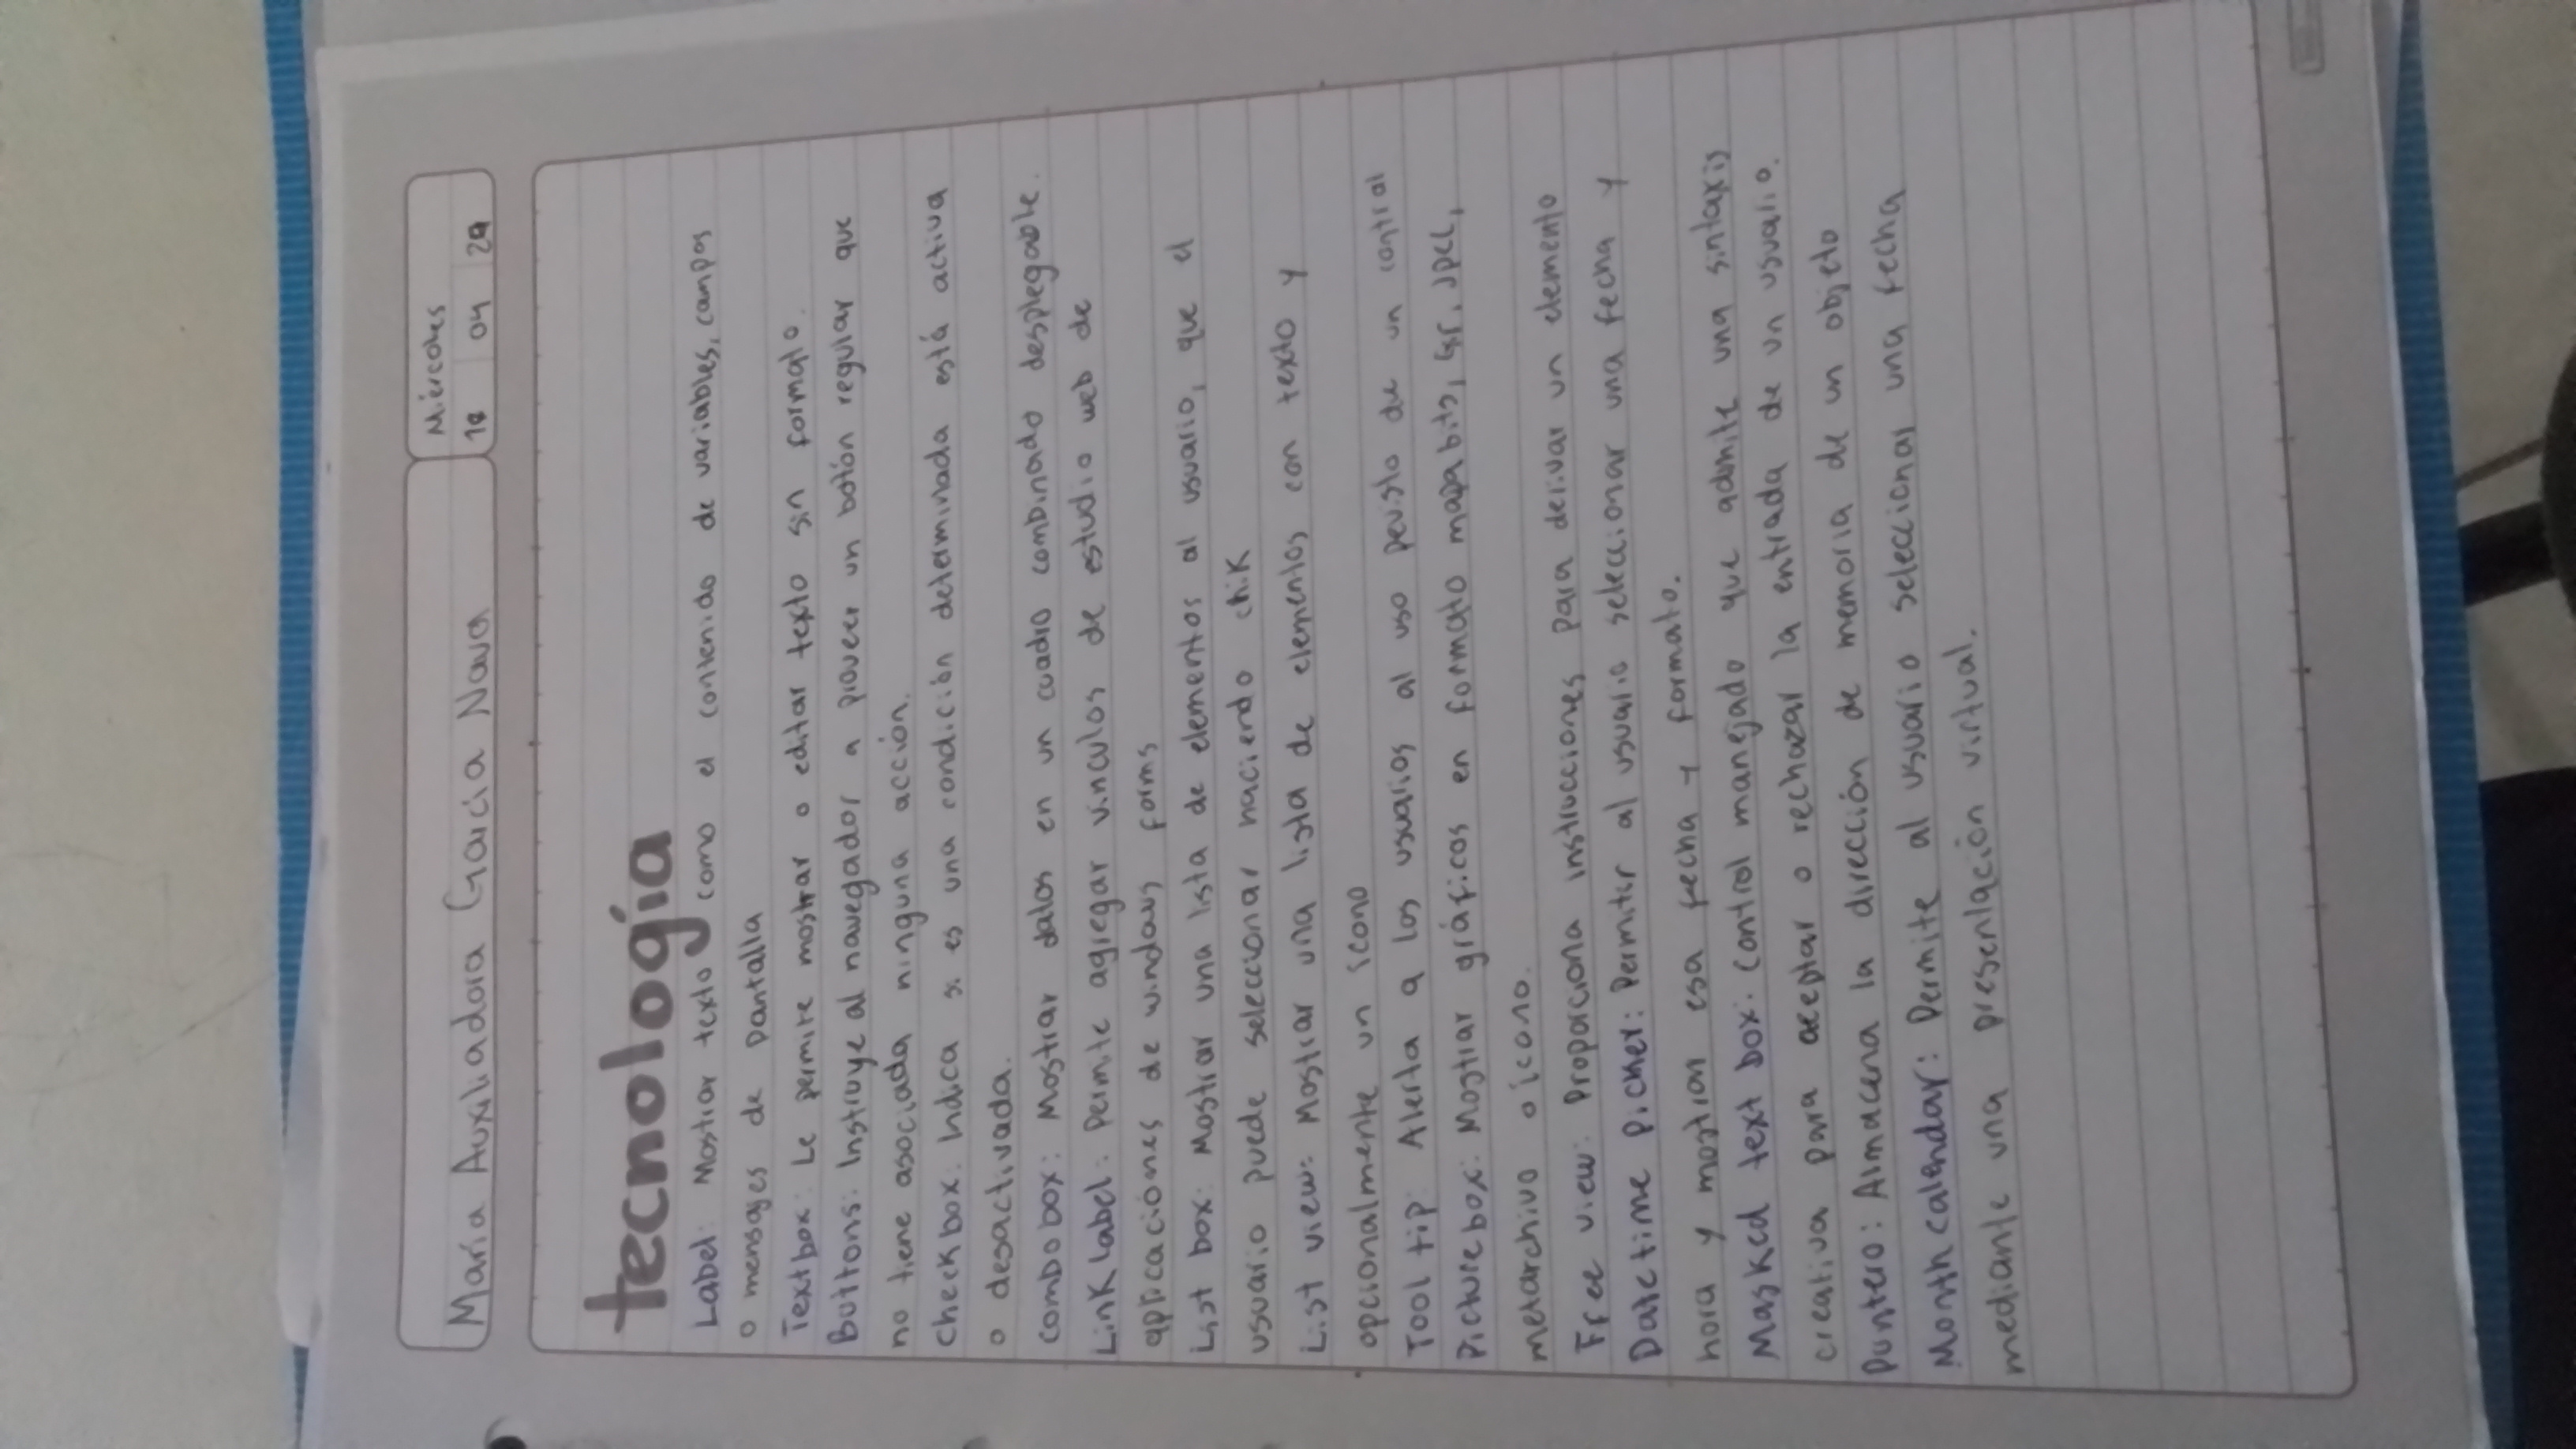 María Auxiliadora García Nava
Miércoles
04
tecnología
Label: Mostrar texto como el contenido de variables, campos
o mensajes de pantalla
Textbox: Le permite mostrar o editar texto sin formato.
Buttons: Instruye al navegador a proveer un botón regular que
no tiene asociada ninguna acción.
Checkbox: Indica si es una condición determinada está activa
o desactivada.
Combobox: Mostrar datos en un cuadro combinado desplegable.
LinK label: permite agregar vínculos de estudio web de
aplicaciónes de windows forms
List box: Mostrar una lista de elementos al usuario, que el
usuario puede seleccionar haciendo
List view: Mostrar una lista de elementos con texto y
opcionalmente un ícono
Tool tip: Alerta a los usuarios al uso de un
Picture box: Mostrar gráficos en formato mapa bits,
metarchivo o ícono.
view: Proporciona instrucciones para derivar un elemento
Date time picker: Permitir al usuario seleccionar una fecha y
hora y mostrar esa fecha y formato.
Masked text box: Control manejado que admite una sintaxis
creativa para aceptar o rechazar la entrada de un usuario.
puntero: Almacena la dirección de memoria de un objeto
Month calendar: Permite al usuario seleccionar una fecha
mediante una presentación virtual.